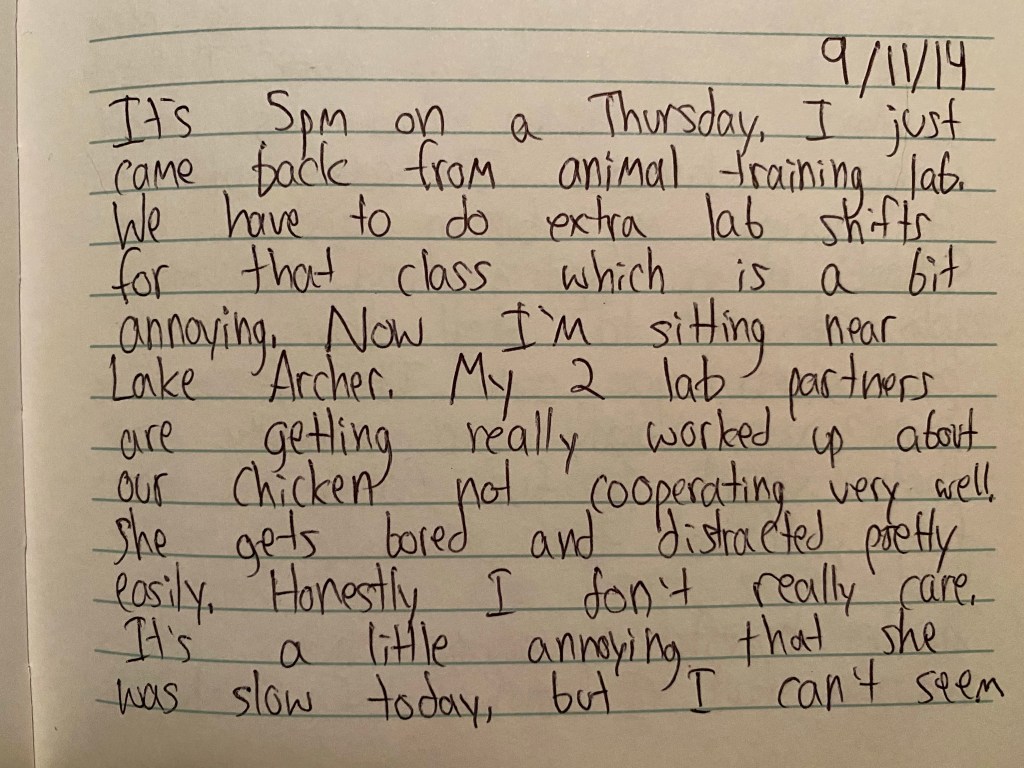 9/11/14
It's 5pm on a Thursday, I just
came back from animal training lab.
We have to do extra lab shifts
for that class which is a bit
annoying. Now I'm sitting near
Lake Archer. My 2 lab partners
are getting really worked up about
our chicken not cooperating very well.
She gets bored and distracted pretty
easily. Honestly I don't really care.
It's a little annoying that she
was slow today, but I can't seem